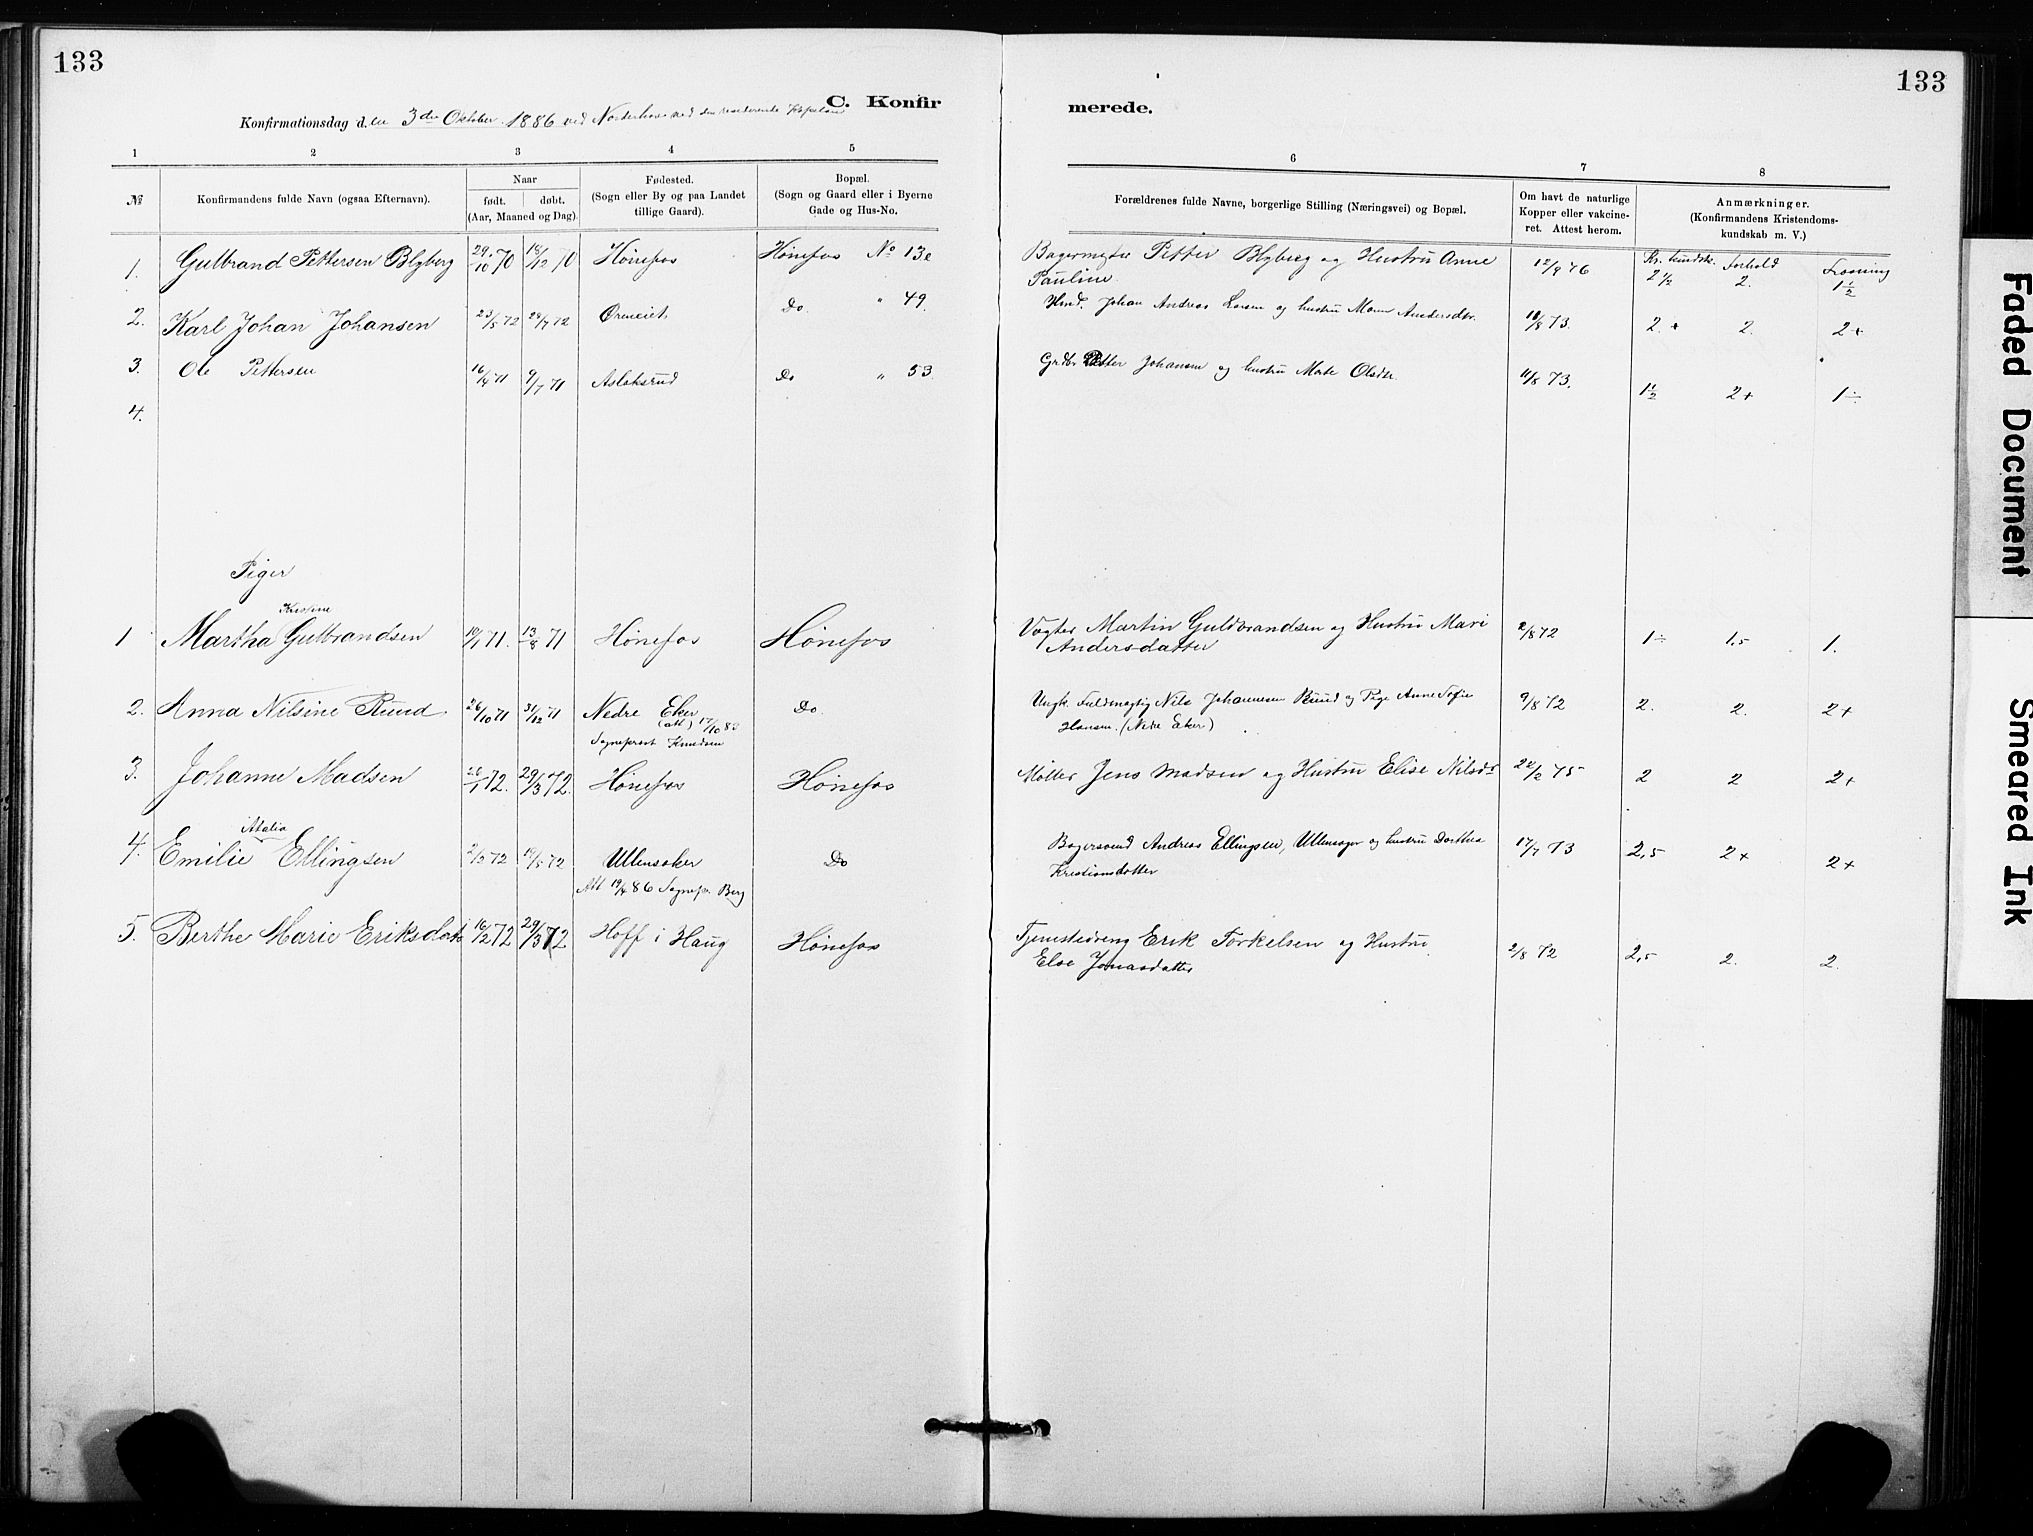 133
C. Konfir
Konfirmationsdag d. en 3die Oktober 1886 ved Norderhov ved den residerende Kapellan
1 2 3 4 5
№
Konfirmandens fulde Navn (ogsaa Efternavn).
Naar
født. døbt.
(Aar, Maaned og Dag).
Fødested.
(Sogn eller By og paa Landet
tillige Gaard).
Bopæl.
(Sogn og Gaard eller i Byerne
Gade og Hus-No.
1. Gulbrand Pettersen Blyberg 29/10 70 18/12 70 Hønefos Hønefos No 13e
2. Karl Johan Johansen 23/5 72 28/7 72 Do " 49.
3. Ole Pettersen 16/4 71 9/7 71 Aslaksrud Do " 53.
4.
Piger
Kristine
1 Martha Gulbrandsen 10/7 71. 13/8 71 Hønefos Hønefos
2. Anna Nilsine Ruud 26/10 71 31/12 71 Nedre Eker Do
(att) 17/10 83
Sogneprest Knudsen
3. Johanne Madsen 26/1 72. 29/3 72. Hønefos Hønefos
Atalia
4. Emilie Ellingsen 2/3 72 19/5 72 Ullensaker Do
Att 19/4 86 Sognepr. Berg
5. Berthe Marie Eriksdatter 16/2 72 29/3 72 Hoff i Haug Hønefos
133
merede.
6 7 8
Forældrenes fulde Navne, borgerlige Stilling (Næringsvei) og Bopæl.
Om havt de naturlige
Kopper eller vakcine-
ret. Attest herom.
Anmærkninger.
(Konfirmandens Kristendoms-
kundskab m. V.)
Kr. kundsk. Forhold
Bagermester Petter Blyberg og Hustru Anne 12/9 76 2 1/2 2. 1 1/2
Pauline.
Johan Andreas Larsen og hustru Andersdtr. 10/8 73. 2+ 2. 2+
Petter Johansen og hustru Marte Olsdtr. 11/8 73. 1 1/2 2+ 1÷
Vogter Martin Guldbrandsen og Hustru Mari 2/8 72 1÷ 1,5 1.
Andersdatter
Ungk. Fuldmægtig Nils Johannesen Ruud og Pige Anne Sofie 9/8 72 2. 2. 2+
Hansen. (Nedre Eker)
Møller Jens Madsen og Hustru Elise Nilsdr 22/2 75 2 2 2+
Bagersvend Andreas Ellingsen, Ullensager og hustru Dorthea 17/7 73 2,5 2+ 2+
Kristiansdatter
Tjenestedreng Erik Torkelsen og Hustru 2/8 72 2,5 2. 2.
Else Jonasdatter
Faded Document
Smeared Ink